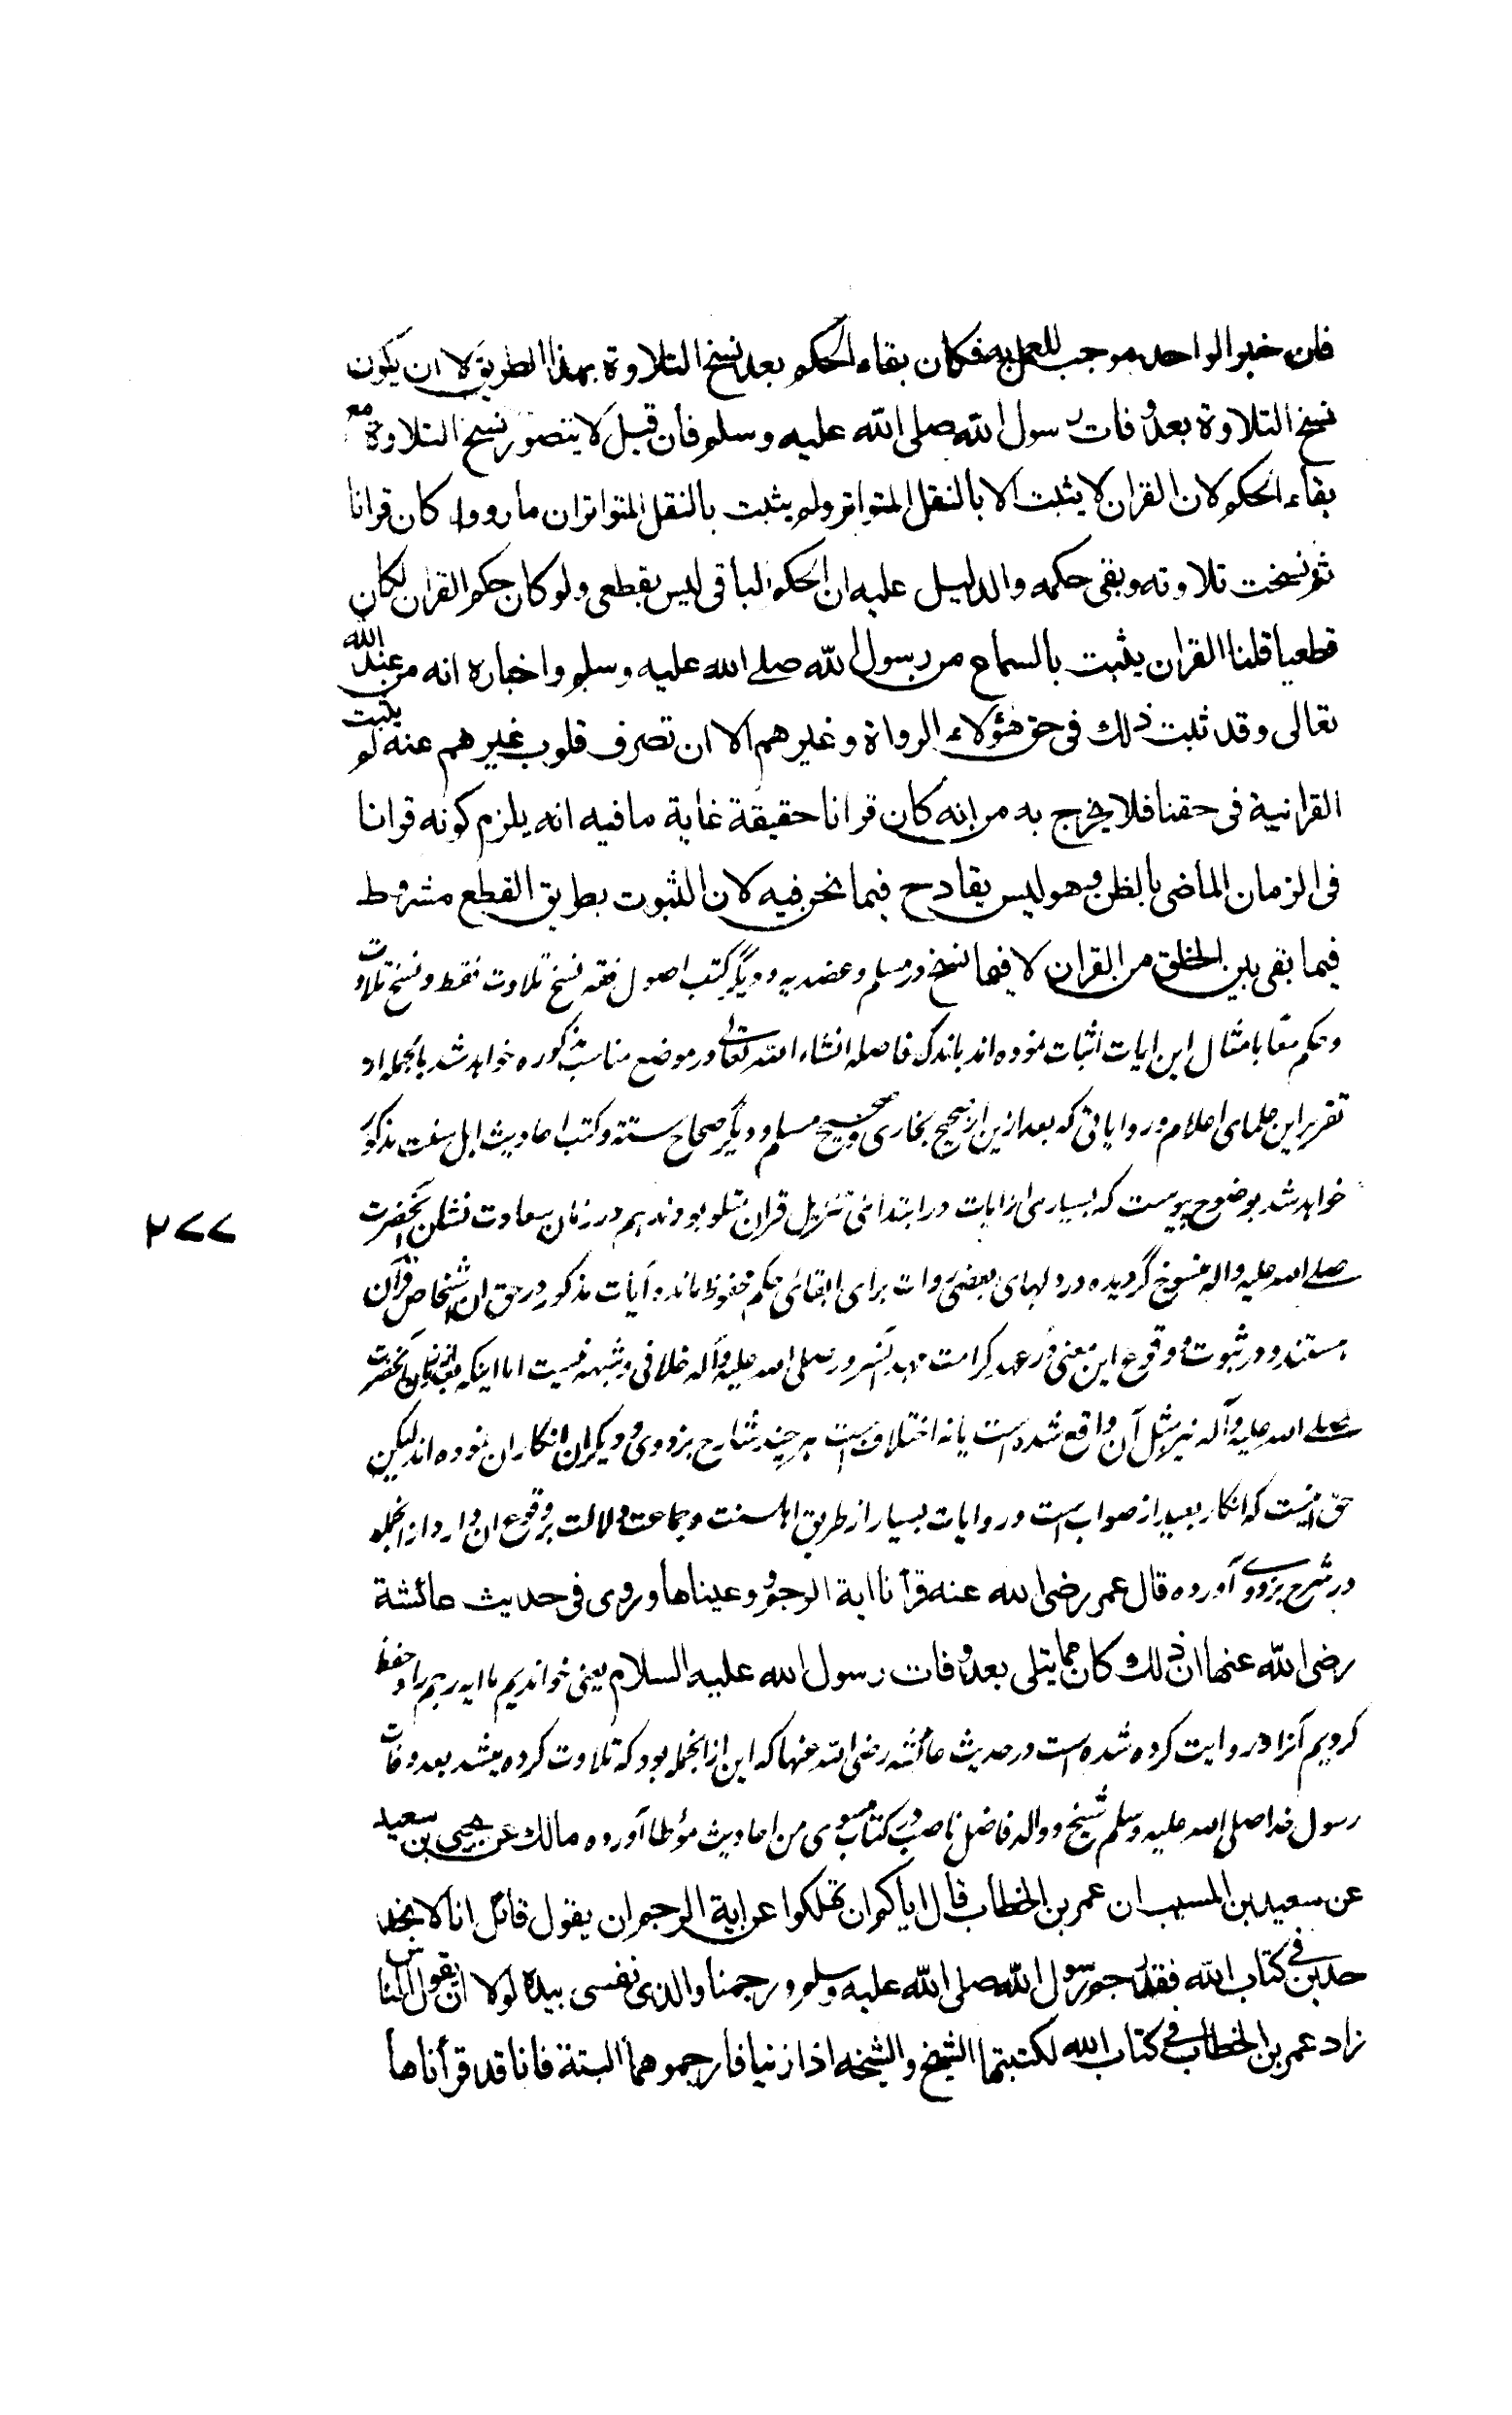 فان خبر الواحد موجب للعمل به فكان بقاء الحكم بعد نسخ التلاوة بهذا الطريق لا ان يكون
نسخ التلاوة بعد وفات رسول الله صلى الله عليه وسلم فان قيل لا يتصور نسخ التلاوة مع
بقاء الحكم لان القران لا يثبت الا بالنقل المتواتر ولم يثبت بالنقل المتواتر ان ما رووا كان قرانا
ثم نسخت تلاوته وبقى حكمه والدليل عليه ان الحكم الباقى ليس بقطعى ولو كان حكم القران لكان
قطعيا قلنا القران يثبت بالسماع من رسول الله صلى الله عليه وسلم واخباره انه من عند الله
تعالى وقد ثبت ذلك فى حق هؤلاء الرواة وغيرهم الا ان تصرف قلوب غيرهم عنه لم يثبت
القرانية فى حقنا فلا يخرج به من انه كان قرانا حقيقة غاية ما فيه انه يلزم كونه قرانا
فى الزمان الماضى بالظن وهو ليس بقادح فيما نحن فيه لان الثبوت بطريق القطع مشروط
فيما بقى بين الخلق من القران لا فيما نسخ در مسلم وعضديه وديگر كتب اصول فقه نسخ تلاوت فقط ونسخ تلاوت
وحكم معًا بامثال اين ايات اثبات نموده اند باندك فاصله انشاء الله تعالى در موضع مناسب مذكوره خواهد شد بالجمله از
تقرير اين علماى اعلام وروايات كه بعد ازين از صحيح بخارى وصحيح مسلم وديگر صحاح سته وكتب احاديث اهل سنت مذكور
خواهد شد بوضوح پيوست كه بسيارى از ايات در ابتداى تنزيل قران متلو بودند هم در زمان سعادت نشان آنحضرت
صلى الله عليه واله منسوخ گرديده در دلهاى بعضى روات براى ابقائى حكم محفوظ مانده وآيات مذكور در حق ان اشخاص قرآن
هستند ودر ثبوت وقوع اين معنى در عهد كرامت مهد آنسرور صلى الله عليه وآله خلافى وشبهه نيست اما اينكه بعد از زمان آنحضرت
صلى الله عليه وآله نيز مثل آن واقع شده است يا نه اختلاف است هر چند شارح بزدوى وديگران انكار ان نموده اند ليكن
حق اينست كه انكار بعيد از صواب است وروايات بسيار از طريق اهلسنت وجماعت دلالت بر وقوع ان دارد از انجمله
در شرح بزدوى آورده قال عمر رضى الله عنه قرأنا اية الرجم وعيناها وروى فى حديث عائشة
رضى الله عنها ان ذلك كان مما يتلى بعد وفات رسول الله عليه السلام يعنى خوانديم ما ايه رجم را وحفظ
كرديم آنرا وروايت كرده شده است در حديث عائشه رضى الله عنها كه اين از انجمله بود كه تلاوت كرده ميشد بعد وفات
رسول خدا صلى الله عليه وسلم شيخ ووالد فاضل ناصب در كتاب مسوى من احاديث مؤطا آورده مالك عن يحيى بن سعيد
عن سعيد بن المسيب ان عمر بن الخطاب قال اياكم ان تهلكوا عن اية الرجم ان يقول قائل انا لا نجد
حدين فى كتاب الله فقد رجم رسول الله صلى الله عليه وسلم ورجمنا والذى نفسى بيده لولا ان يقول الناس
زاد عمر بن الخطاب فى كتاب الله لكتبتها الشيخ والشيخه اذا زنيا فارجموهما البتة فانا قد قرأناها
٢٧٧